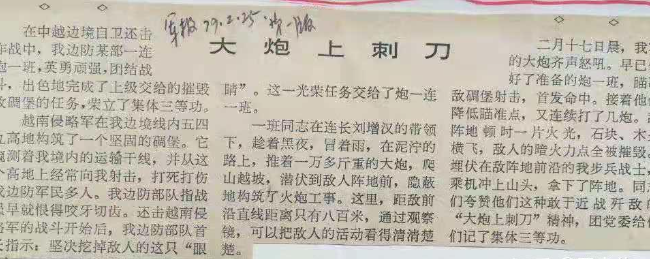 军报 79.2.25 第一版
大炮上刺刀
在中越边境自卫还击
作战中，我边防某部一连
炮一班，英勇顽强，团结战
斗，出色地完成了上级交给的摧毁
敌碉堡的任务，荣立了集体三等功。
越南侵略军在我边境线内五四
高地构筑了一个坚固的碉堡。它
窥测着我境内的运输干线，并从这
个高地上经常向我射击，打死打伤
边防军民多人。我边防部队指战
员早就恨得咬牙切齿。还击越南侵
略军的战斗开始后，我边防部队首
长指示：坚决挖掉敌人的这只“眼
睛”。这一光荣任务交给了炮一连
一班。
一班同志在连长刘增汉的带领
下，趁着黑夜，冒着雨，在泥泞的
路上，推着一万多斤重的大炮，爬
山越坡，潜伏到敌人阵地前，隐蔽
地构筑了火炮工事。这里，距敌前
沿直线距离只有八百米，通过观察
镜，可以把敌人的活动看得清清楚
楚。
二月十七日晨，我
的大炮齐声怒吼。早已
好了准备的炮一班，瞄
敌碉堡射击，首发命中。接着他
降低瞄准点，又连续打了几炮。
阵地顿时一片火光，石块、木
横飞，敌人的暗火力点全被摧毁。
埋伏在敌阵地前沿的我步兵战士，
乘机冲上山头，拿下了阵地。同
们夸赞他们这种敢于近战歼敌
“大炮上刺刀”精神，团党委给
们记了集体三等功。